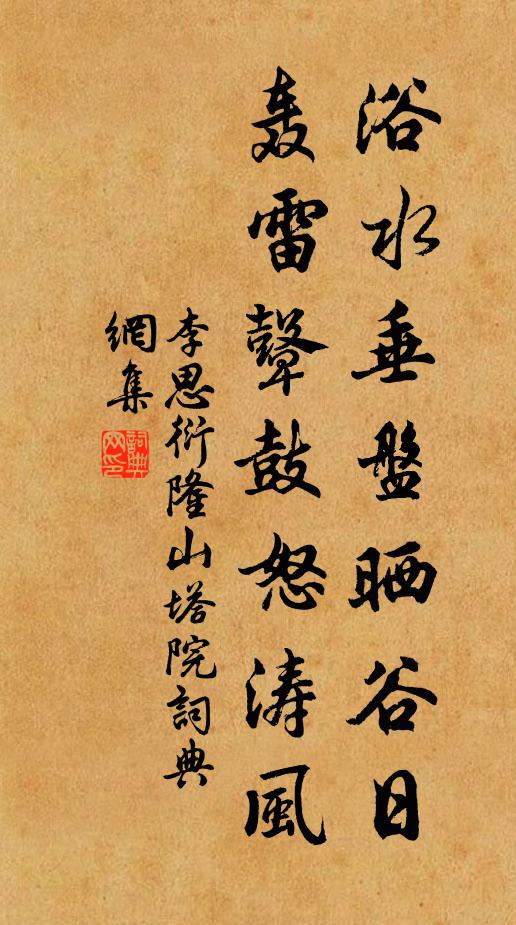 浴水垂盤晒谷日
轰雷鼙鼓怒涛風
李思衍隆山塔院詞典
網集
詞典
网印